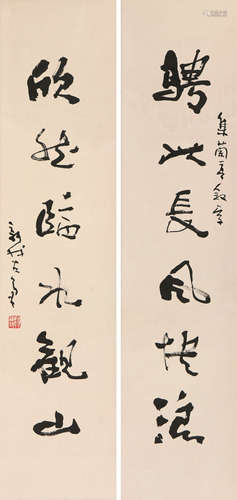 騁此長風快浪
集蘭亭敘字
欣然臨水觀山